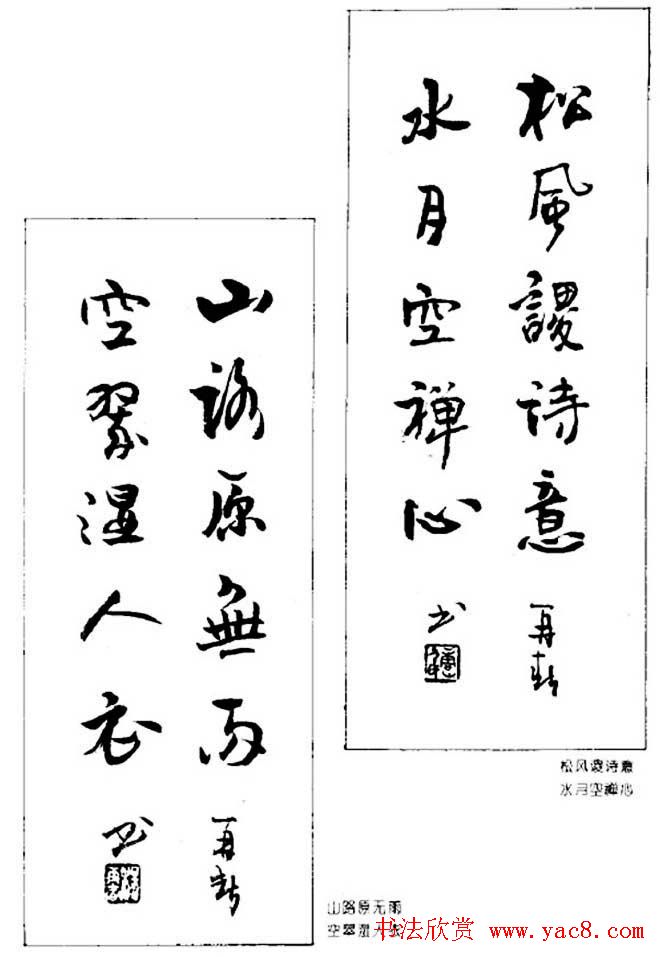 松風謖詩意
水月空禅心
再新
书
松风谡诗意
水月空禅心
山路原無雨
空翠湿人衣
再新
书
山路原无雨
空翠湿人衣
书法欣赏 www.yac8.com